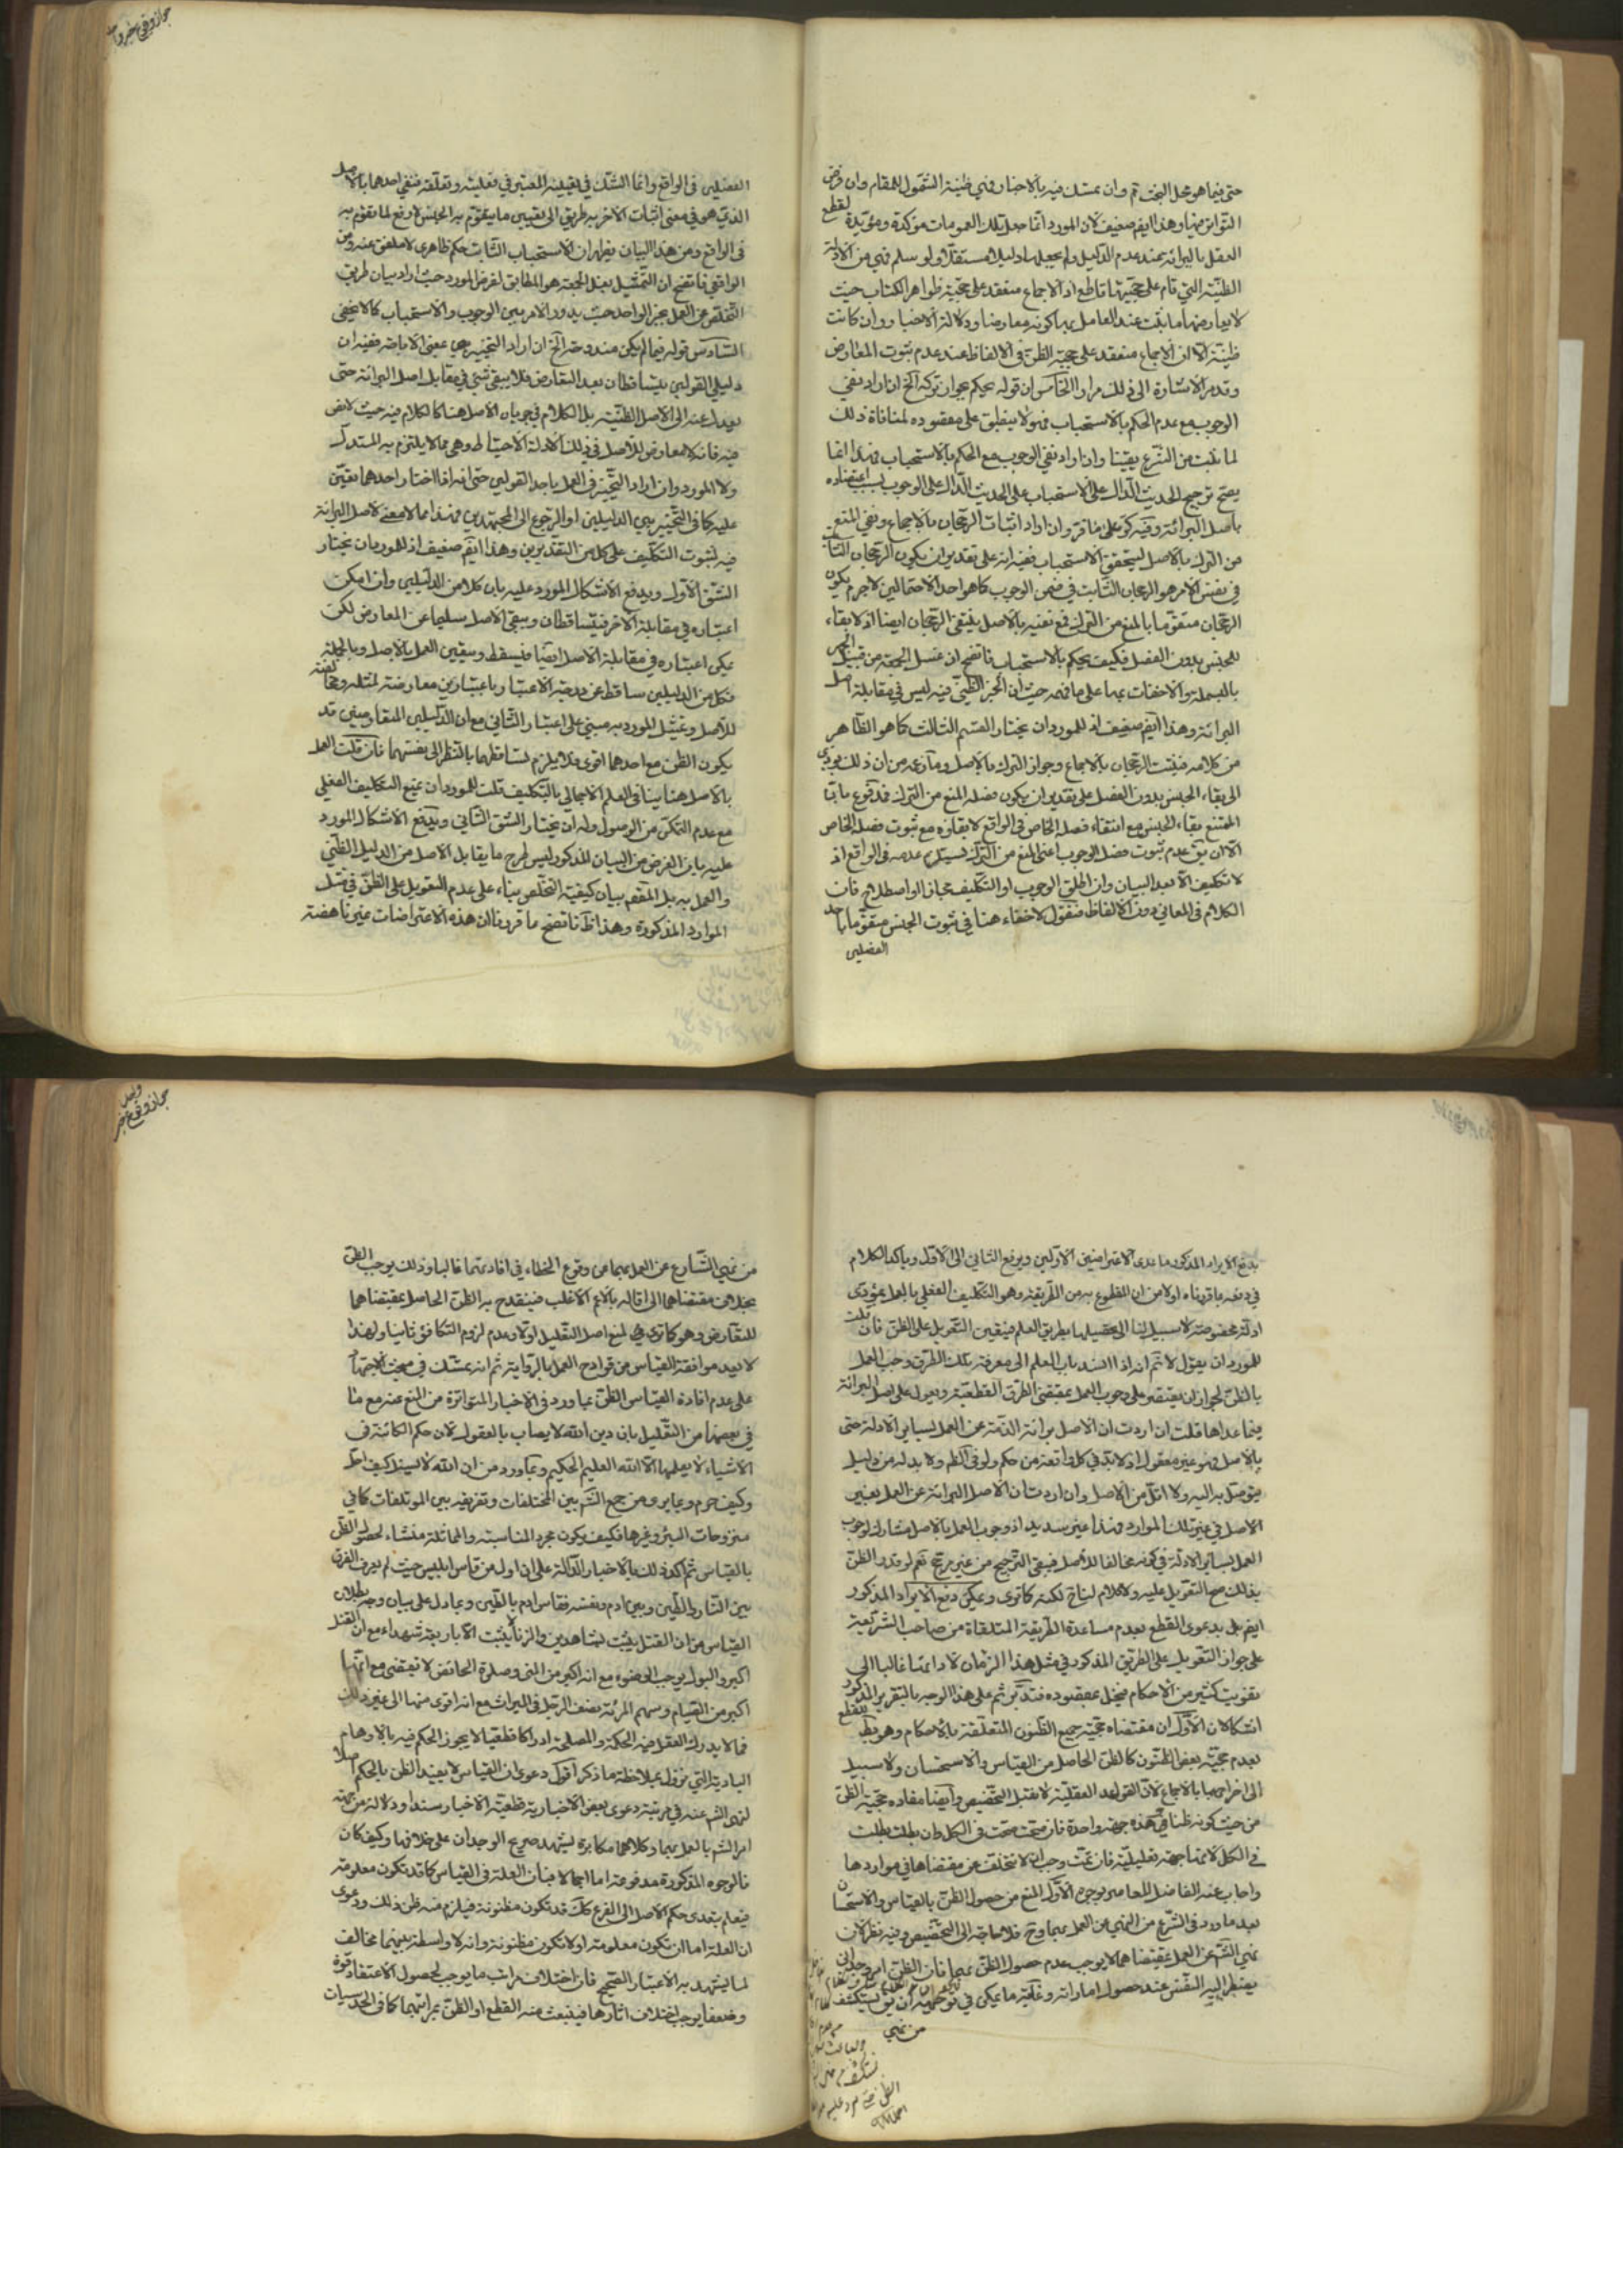 حتى فيما هو محل البحث ثم وان تمسك فيه بالاخبار فهي ظنية الشمول للمقام وان فرض
التواتر فيها وهذا ايضم ضعيف لان المورد انما جعل تلك العمومات مؤكدة ومؤيدة لقطع
العقل بالبرائة عند عدم الدليل ولم يجعلها دليلا مستقلا ولو سلم فهي من الادلة
الظنية التي قام على حجيتها قاطع اذ الاجماع منعقد على حجية ظواهر الكتاب حيث
لا يعارضها ما يثبت عند العامل بها كونه معارضا ودلالة الاخبار وان كانت
ظنية الا ان الاجماع منعقد على حجية الظن في الالفاظ عند عدم ثبوت المعارض
وقد مر الاشارة الى ذلك مرارا الخامس ان قوله يحكم بجواز تركه الخ ان اراد نفي
الوجوب مع عدم الحكم بالاستحباب فهو لا ينطبق على مقصوده لمنافاة ذلك
لما ثبت من الشرع يقينا وان اراد نفي الوجوب مع الحكم بالاستحباب فهذا انما
يصح ترجيح الحديث الدال على الاستحباب على الحديث الدال على الوجوب بسبب اعتضاده
باصل البرائة وفيه كر على ما فر وان اراد اثبات الرجحان بالاجماع ونفي المنع
من الترك بالاصل ليتحقق الاستحباب ففيه انه على تقدير ان يكون الرجحان الثابت
في نفس الامر هو الرجحان الثابت في ضمن الوجوب كما هو احد الاحتمالين لا جرم يكون
الرجحان متقوما بالمنع من الترك فمع نفيه بالاصل ينتفي الرجحان ايضا اذ لا بقاء
للجنس بدون الفصل فكيف يحكم بالاستحباب فاتضح ان غسل الجمعة من قبيل الجهر
بالبسملة والاخفات بها على ما فهمه حيث ان الخبر الظني فيه ليس في مقابلة اصل
البرائة وهذا ايضم ضعيف اذ للمورد ان يختار القسم الثالث كما هو الظاهر
من كلامه فيثبت الرجحان بالاجماع وجواز الترك بالاصل وما زعمه من ان ذلك يؤدي
الى بقاء الجنس بدون الفصل على تقدير ان يكون فصله المنع من الترك فمدفوع بان
الممتنع بقاء الجنس مع انتفاء فصله الخاص في الواقع لا بقاؤه مع ثبوت فصل الخاص
الا ان يق عدم ثبوت فصل الوجوب اعني المنع من الترك يستلزم عدمه في الواقع اذ
لا تكليف الا بعد البيان وان اطلق الوجوب او التكليف مجازا واصطلاح فان
الكلام في المعاني دون الالفاظ فنقول لا خفاء هنا في ثبوت الجنس متقوما باحد
الفصلين
جواز وقوع خبر واحد
الفصلين في الواقع وانما الشك في تعيينه المعتبر في فعليته وتعلقه فنفي احدهما بالاصل
الذي هو في معنى اثبات الاخر به طريق الى تعيين ما يتقوم به الجنس لا رفع لما تقوم به
في الواقع ومن هذا البيان يظهر ان الاستحباب الثابت حكم ظاهري لا ملفق عنه ومن
الواقعي فاتضح ان التمثيل بغسل الجمعة هو المطابق لغرض المورد حيث اراد بيان طريق
التخلص عن العمل بخبر الواحد حيث يدور الامر بين الوجوب والاستحباب كما لا يخفى
السادس قوله فيما لم يكن مندوحة الخ ان اراد التخيير هي بمعنى الاباحة ففيه ان
دليلي القولين يتساقطان بعد التعارض فلا يبقى شيء في مقابل اصل البرائة حتى
يعدل عنه الى الاصل الظنية بل الكلام في جريان الاصل هنا كالكلام فيه حيث لا نص
فيه فانه لا معارض للاصل في ذلك الا ادلة الاحتياط وهي مما لا يلتزم به المستدل
ولا المورد وان اراد التخيير في العمل باحد القولين حتى انه اذا اختار احدهما تعين
عليه كما في التخيير بين الدليلين او الرجوع الى المجتهدين فهذا مما لا معنى لاصل البرائة
فيه لثبوت التكليف على كل من التقديرين وهذا ايضم ضعيف اذ للمورد ان يختار
الشق الاول ويدفع الاشكال المورد عليه بان كلا من الدليلين وان امكن
اعتباره في مقابلة الاخر فيتساقطان ويبقى الاصل سليما عن المعارض لكن
يمكن اعتباره في مقابلة الاصل ايضا فيسقط ويتعين العمل بالاصل وبالجملة
فكل من الدليلين ساقط عن درجة الاعتبار باعتبارين معارضة لمثله ومخالفته
للاصل وتمثيل المورد به مبني على اعتبار الثاني مع ان الدليلين المتعارضين قد
يكون الظن مع احدهما اقوى فلا يلزم تساقطهما بالنظر الى نفسهما فان قلت العمل
بالاصل هنا ينافي العلم الاجمالي بالتكليف قلت للمورد ان يمنع التكليف الفعلي
مع عدم التمكن من الوصول وله ان يختار الشق الثاني ويدفع الاشكال المورد
عليه بان الغرض من البيان المذكور ليس طرح ما يقابل الاصل من الدليل الظني
والعمل به بل المقصم بيان كيفية التخلص بناء على عدم التعويل على الظن في مثل
الموارد المذكورة وهذا ظ فاتضح ما قررنا ان هذه الاعتراضات غير ناهضة
بدفع الايراد المذكور ما عدى الاعتراضين الاولين ويرجع الثاني الى الاول وياكد الكلام
في دفعه ما قررناه اولا من ان المقطوع به من الطريقة وهو التكليف الفعلي بالعمل بمؤدى
ادلة مخصوصة لا سبيل لنا الى تحصيلها بطريق العلم فيتعين التعويل على الظن فان قلت
للمورد ان يقول لا نم انه اذا انسد باب العلم الى معرفة تلك الطرق وجب العمل
بالظن لجواز ان يقتصر على وجوب العمل بمقتضى الطرق القطعية ويعول على اصل البرائة
فيما عداها قلت ان اردت ان الاصل برائة الذمة عن العمل بسائر الادلة حتى
بالاصل فهو غير معقول اذ لا بد في كل واقعة من حكم ولو في الظم ولا بد له من دليل
يتوصل به اليه ولا اقل من الاصل وان اردت ان الاصل البرائة عن العمل بغير
الاصل في غير تلك الموارد فهذا غير سديد اذ وجوب العمل بالاصل مشارك لوجوب
العمل بسائر الادلة في كونه مخالفا للاصل فيبقى الترجيح من غير مرجح نعم لو قدر الظن
بذلك صح التعويل عليه ولا كلام لنا ح لكنه كما ترى ويمكن دفع الايراد المذكور
ايضم بل بدعوى القطع بعدم مساعدة الطريقة المتلقاة من صاحب الشريعة
على جواز التعويل على الطريق المذكور في مثل هذا الزمان لادائها غالبا الى
تفويت كثير من الاحكام فيخل بمقصوده فتدبر ثم على هذا الوجه بالتقرير المذكور
اشكالان الاول ان مقتضاه حجية جميع الظنون المتعلقة بالاحكام وهو بط للقطع
بعدم حجية بعض الظنون كالظن الحاصل من القياس والاستحسان ولا سبيل
الى اخراجها بالاجماع لان القواعد العقلية لا تقبل التخصيص وايضا مفاده حجية الظن
من حيث كونه ظنا وهذه جهة واحدة فان صحت صحت في الكل وان بطلت بطلت
في الكل لانها جهة تعليلية فان تمت وجب ان لا تتخلف عن مقتضاها في مواردها
واجاب عنه الفاضل المعاصر بوجوه الاول المنع من حصول الظن بالقياس والاستحسان
بعد ما ورد في الشرع من النهي عن العمل بهما وح فلا حاجة الى التخصيص وفيه نظر لان
نهي الشم عن العمل بمقتضاهما لا يوجب عدم حصول الظن بهما فان الظن امر وجداني
يضطر اليه النفس عند حصول اماراته وغاية ما يمكن في توجيهه ان يق يستكشف
من نهي
جواز وقوع خبر واحد
من نهي الشارع عن العمل بهما عن وقوع الخطاء في افادتهما غالبا وذلك يوجب الظن
بخلاف مقتضاهما الى اقاله بالاعم الاغلب فينقدح به الظن الحاصل بمقتضاهما
للتعارض وهو كما ترى في لمنع اصل التعليل اولا وعدم لزوم التكافؤ ثانيا ولهذا
لا يعد موافقة القياس من قوادح العمل بالرواية ثم انه تمسك في مبحث الاجتهاد
على عدم افادة القياس الظن بما ورد في الاخبار المتواترة من المنع عنه مع ما
في بعضها من التعليل بان دين الله لا يصاب بالعقول لان حكم الكائنة في
الاشياء لا يعلمها الا الله العليم الحكيم وبما ورد من ان الله لا يسئل كيف احل
وكيف حرم وبما يرى من جمع الشم بين المختلفات وتفريقه بين المؤتلفات كما في
منزوحات البئر وغيرها فكيف يكون مجرد المناسبة والمماثلة منشاء لحصول الظن
بالقياس ثم اكد ذلك بالاخبار الدالة على ان اول من قاس ابليس حيث لم يعرف الفرق
بين النار والطين وبين ادم ونفسه فقاس ادم بالطين وبما دل على بيان وجه بطلان
القياس من ان القتل يثبت بشاهدين والزنا لا يثبت الا باربعة شهداء مع ان القتل
اكبر والبول يوجب الوضوء مع انه اكبر من المني وصلوة الحائض لا تقضى مع انها
اكبر من الصيام وسهم المرئة نصف الرجل في الميراث مع انه اقوى منها الى غير ذلك
فما لا يدرك العقل فيه الحكمة والمصلحة ادراكا قطعيا لا يجوز الحكم فيه بالاوهام
البادية التي تزول بملاحظة ما ذكر اقول دعوى ان القياس لا يفيد الظن بالحكم اصلا
لنهي الشم عنه في مرتبة دعوى بعض الاخبارية قطعية الاخبار سندا ودلالة من جهة
امر الشم بالعمل بها وكلاهما مكابرة يشهد صريح الوجدان على خلافها وكيف كان
فالوجوه المذكورة مدفوعة اما اجمالا فبان العلة في القياس كما قد تكون معلومة
فيعلم بتعدى حكم الاصل الى الفرع كك قد تكون مظنونة فيلزم منه ظن ذلك ودعوى
ان العلة اما ان تكون معلومة او لا تكون مظنونة وانه لا واسطة بينهما مخالف
لما يشهد به الاعتبار الصحيح فان اختلاف مراتب ما يوجب لحصول الاعتقاد قوة
وضعفا يوجب اختلاف اثارها فينبعث منه القطع او الظن بمراتبهما كما في الحدسيات